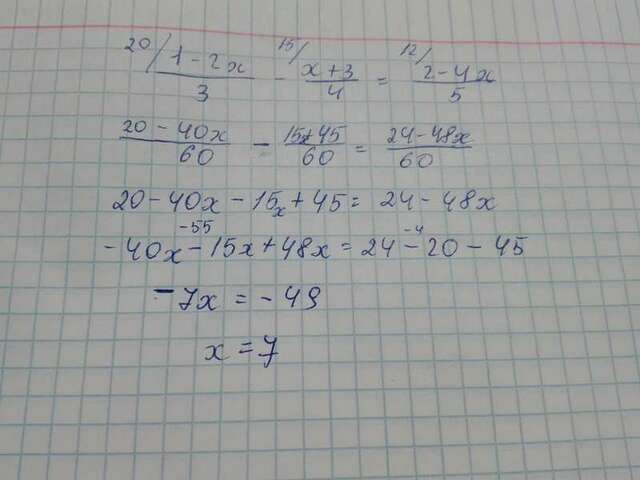 20/ 1-2x 15/ x+3 12/ 2-4x
3 - 4 = 5
20-40x - 15x+45 = 24-48x
60 60 60
20-40x-15x+45 = 24-48x
-55 -4
-40x-15x+48x = 24-20-45
-7x = -49
x = 7